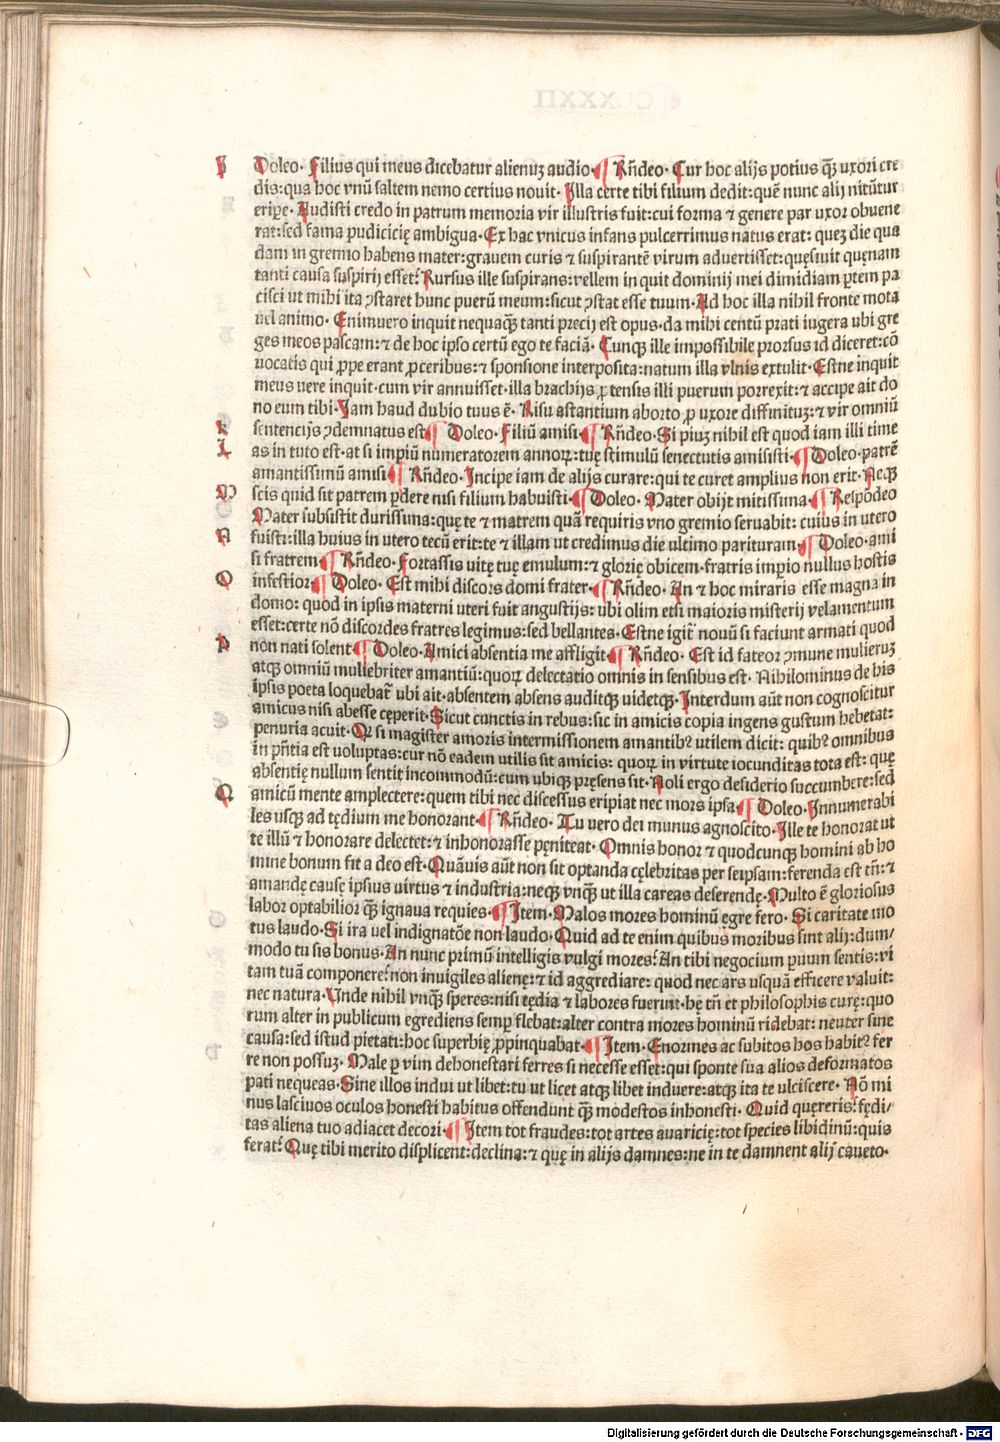 I Doleo· Filius qui meus dicebatur alienuȝ audio·¶ Rñdeo· Cur hoc alijs potius q̃ȝ uxori cre
dis:qua hoc vnũ saltem nemo certius nouit· Illa certe tibi filium dedit:quẽ nunc alij nitũtur
eriꝑe· Audisti credo in patrum memoria vir illustris fuit:cui forma ⁊ genere par uxor obuene
rat:sed fama pudicicię ambigua· Ex hac vnicus infans pulcerrimus natus erat: queȝ die qua
dam in gremio habens mater:grauem curis ⁊ suspirantẽ virum aduertisset:quęsiuit quęnam
tanti causa suspirij esset? Rursus ille suspirans:vellem in quit dominij mei dimidiam ꝑtem pa
cisci ut mihi ita ꝯstaret hunc puerũ meum:sicut ꝯstat esse tuum· Ad hoc illa nihil fronte mota
uel animo· Enimuero inquit nequaq̃ȝ tanti precij est opus·da mihi centũ prati iugera ubi gre
ges meos pascam:⁊ de hoc ipso certũ ego te faciã· Cunqȝ ille impossibile prorsus id diceret:cõ
uocatis qui ꝓpe erant ꝓceribus:⁊ sponsione interposita:natum illa vlnis extulit· Estne inquit
meus uere inquit·cum vir annuisset·illa brachijs ꝓtensis illi puerum porrexit:⁊ accipe ait do
no eum tibi·Iam haud dubio tuus ẽ· Risu astantium aborto ꝓ uxore diffinituȝ:⁊ vir omniũ
K sentencijs ꝯdemnatus est¶ Doleo· Filiũ amisi·¶ Rñdeo·Si piuȝ nihil est quod iam illi time
L as in tuto est·at si impiũ numeratorem annoꝝ:tuę stimulũ senectutis amisisti·¶Doleo·patrẽ
amantissimũ amisi¶ Rñdeo·Incipe iam de alijs curare:qui te curet amplius non erit·Neqȝ
M scis quid sit patrem ꝑdere nisi filium habuisti·¶Doleo· Mater obijt mitissima·¶Respõdeo
Mater subsistit durissima:quę te ⁊ matrem quã requiris vno gremio seruabit: cuius in utero
N fuisti:illa huius in utero tecũ erit:te ⁊ illam ut credimus die ultimo parituram·¶ Doleo·ami
si fratrem¶Rñdeo· Fortassis uitę tuę emulum:⁊ glorię obicem·fratris imꝑio nullus hostis
O infestior¶ Doleo· Est mihi discors domi frater·¶Rñdeo· An ⁊ hoc miraris esse magna in
domo: quod in ipsis materni uteri fuit angustijs: ubi olim etsi maioris misterij velamentum
esset:certe nõ discordes fratres legimus:sed bellantes· Estne igit̃ nouũ si faciunt armati quod
P non nati solent¶ Doleo·Amici absentia me affligit¶ Rñdeo· Est id fateor ꝯmune mulieruȝ
atqȝ omniũ muliebriter amantiũ:quoꝝ delectatio omnis in sensibus est· Nihilominus de his
ipsis poeta loquebat̃ ubi ait·absentem absens auditqȝ uidetqȝ·Interdum aũt non cognoscitur
amicus nisi abesse cęperit·Sicut cunctis in rebus:sic in amicis copia ingens gustum hebetat:
penuria acuit·Qꝛ si magister amoris intermissionem amantibꝰ utilem dicit: quibꝰ omnibus
in pñtia est uoluptas:cur nõ eadem utilis sit amicis: quoꝝ in virtute iocunditas tota est: quę
absentię nullum sentit incommodũ:cum ubiqȝ pręsens sit·Noli ergo desiderio succumbere:sed
Q amicũ mente amplectere:quem tibi nec discessus eripiat nec mors ipsa¶Doleo·Innumerabi
les usqȝ ad tędium me honorant·¶Rñdeo· Tu uero dei munus agnoscito·Ille te honorat ut
te illũ ⁊ honorare delectet:⁊ inhonorasse pęniteat· Omnis honor ⁊ quodcunqȝ homini ab ho
mine bonum fit a deo est·Quãuis aũt non sit optanda cęlebritas per seipsam:ferenda est tñ:⁊
amandę causę ipsius virtus ⁊ industria:neqȝ vnq̃ȝ ut illa careas deserendę·Multo ẽ gloriosus
labor optabilior q̃ȝ ignaua requies·¶Item·Malos mores hominũ egre fero· Si caritate mo
tus laudo·Si ira uel indignatõe non laudo·Quid ad te enim quibus moribus sint alij:dum/
modo tu sis bonus·An nunc primũ intelligis vulgi mores? An tibi negocium ꝑuum sentis:vi
tam tuã componere?non inuigiles alienę:⁊ id aggrediare: quod nec ars usquã efficere valuit:
nec natura·Unde nihil vnq̃ȝ speres:nisi tędia ⁊ labores fuerint·hę tñ et philosophis curę:quo
rum alter in publicum egrediens semꝑ flebat:alter contra mores hominũ ridebat: neuter sine
causa:sed istud pietati:hoc superbię ꝓpinquabat·¶Item·Enormes ac subitos hos habitꝰ fer
re non possuȝ· Male ꝑ vim dehonestari ferres si necesse esset:qui sponte sua alios deformatos
pati nequeas·Sine illos indui ut libet:tu ut licet atqȝ libet induere:atqȝ ita te ulciscere· Nõ mi
nus lasciuos oculos honesti habitus offendunt q̃ȝ modestos inhonesti· Quid quęreris?fędi/
tas aliena tuo adiacet decori·¶Item tot fraudes:tot artes auaricię:tot species libidinũ:quis
ferat? Quę tibi merito displicent:declina:⁊ quę in alijs damnes:ne in te damnent alij caueto·
Digitalisierung gefördert durch die Deutsche Forschungsgemeinschaft - DFG